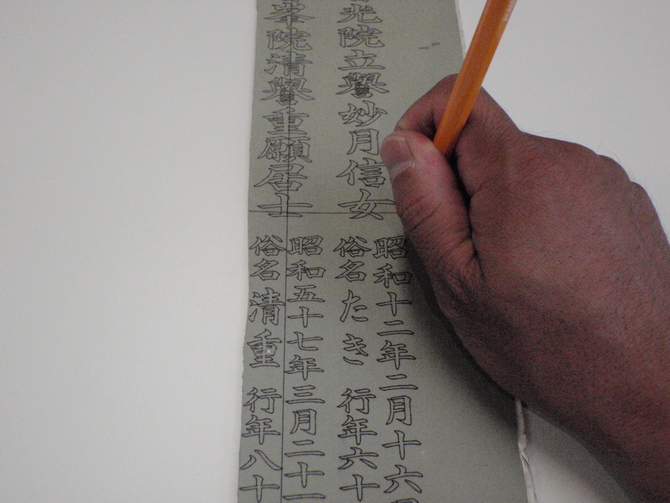 光院立譽妙月信女
昭和十二年二月十六
俗名 たき 行年六十
峯院清譽重願居士
昭和五十七年三月二十
俗名 清重 行年八十